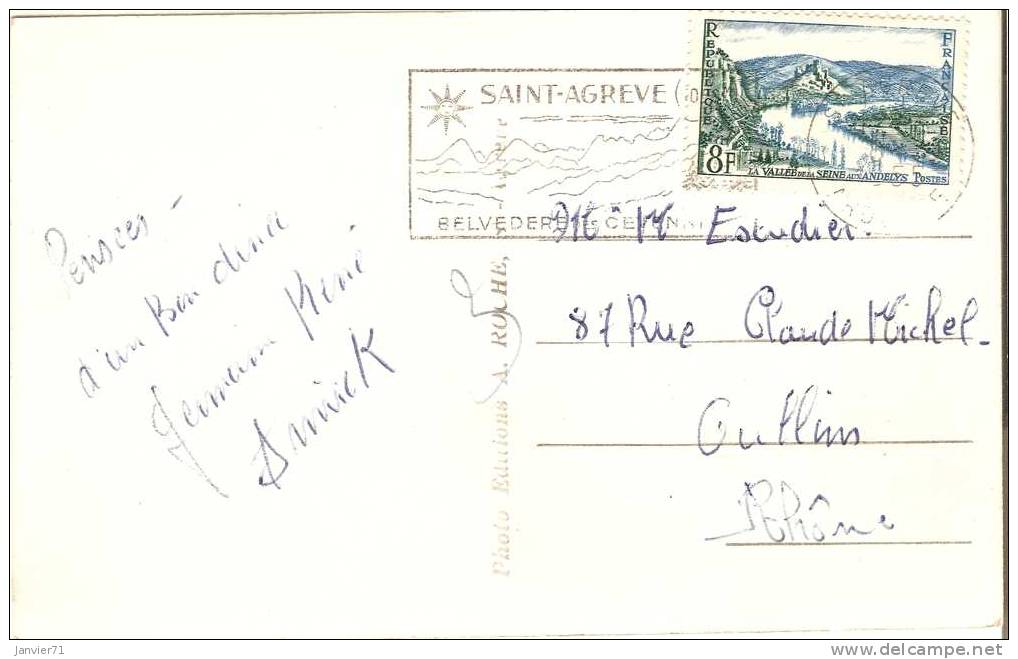 SAINT-AGREVE
BELVEDERE DES CEVENNES
REPUBLIQUE FRANÇAISE
8F
LA VALLEE DE LA SEINE AUX ANDELYS POSTES
Pensées
d'un Bon
Germain René
Annick
Photo Editions A. ROCHE,
Mr Mr Escudier.
87 Rue Claude Michel
Oullins
Rhône
Janvier71
delcampe.net